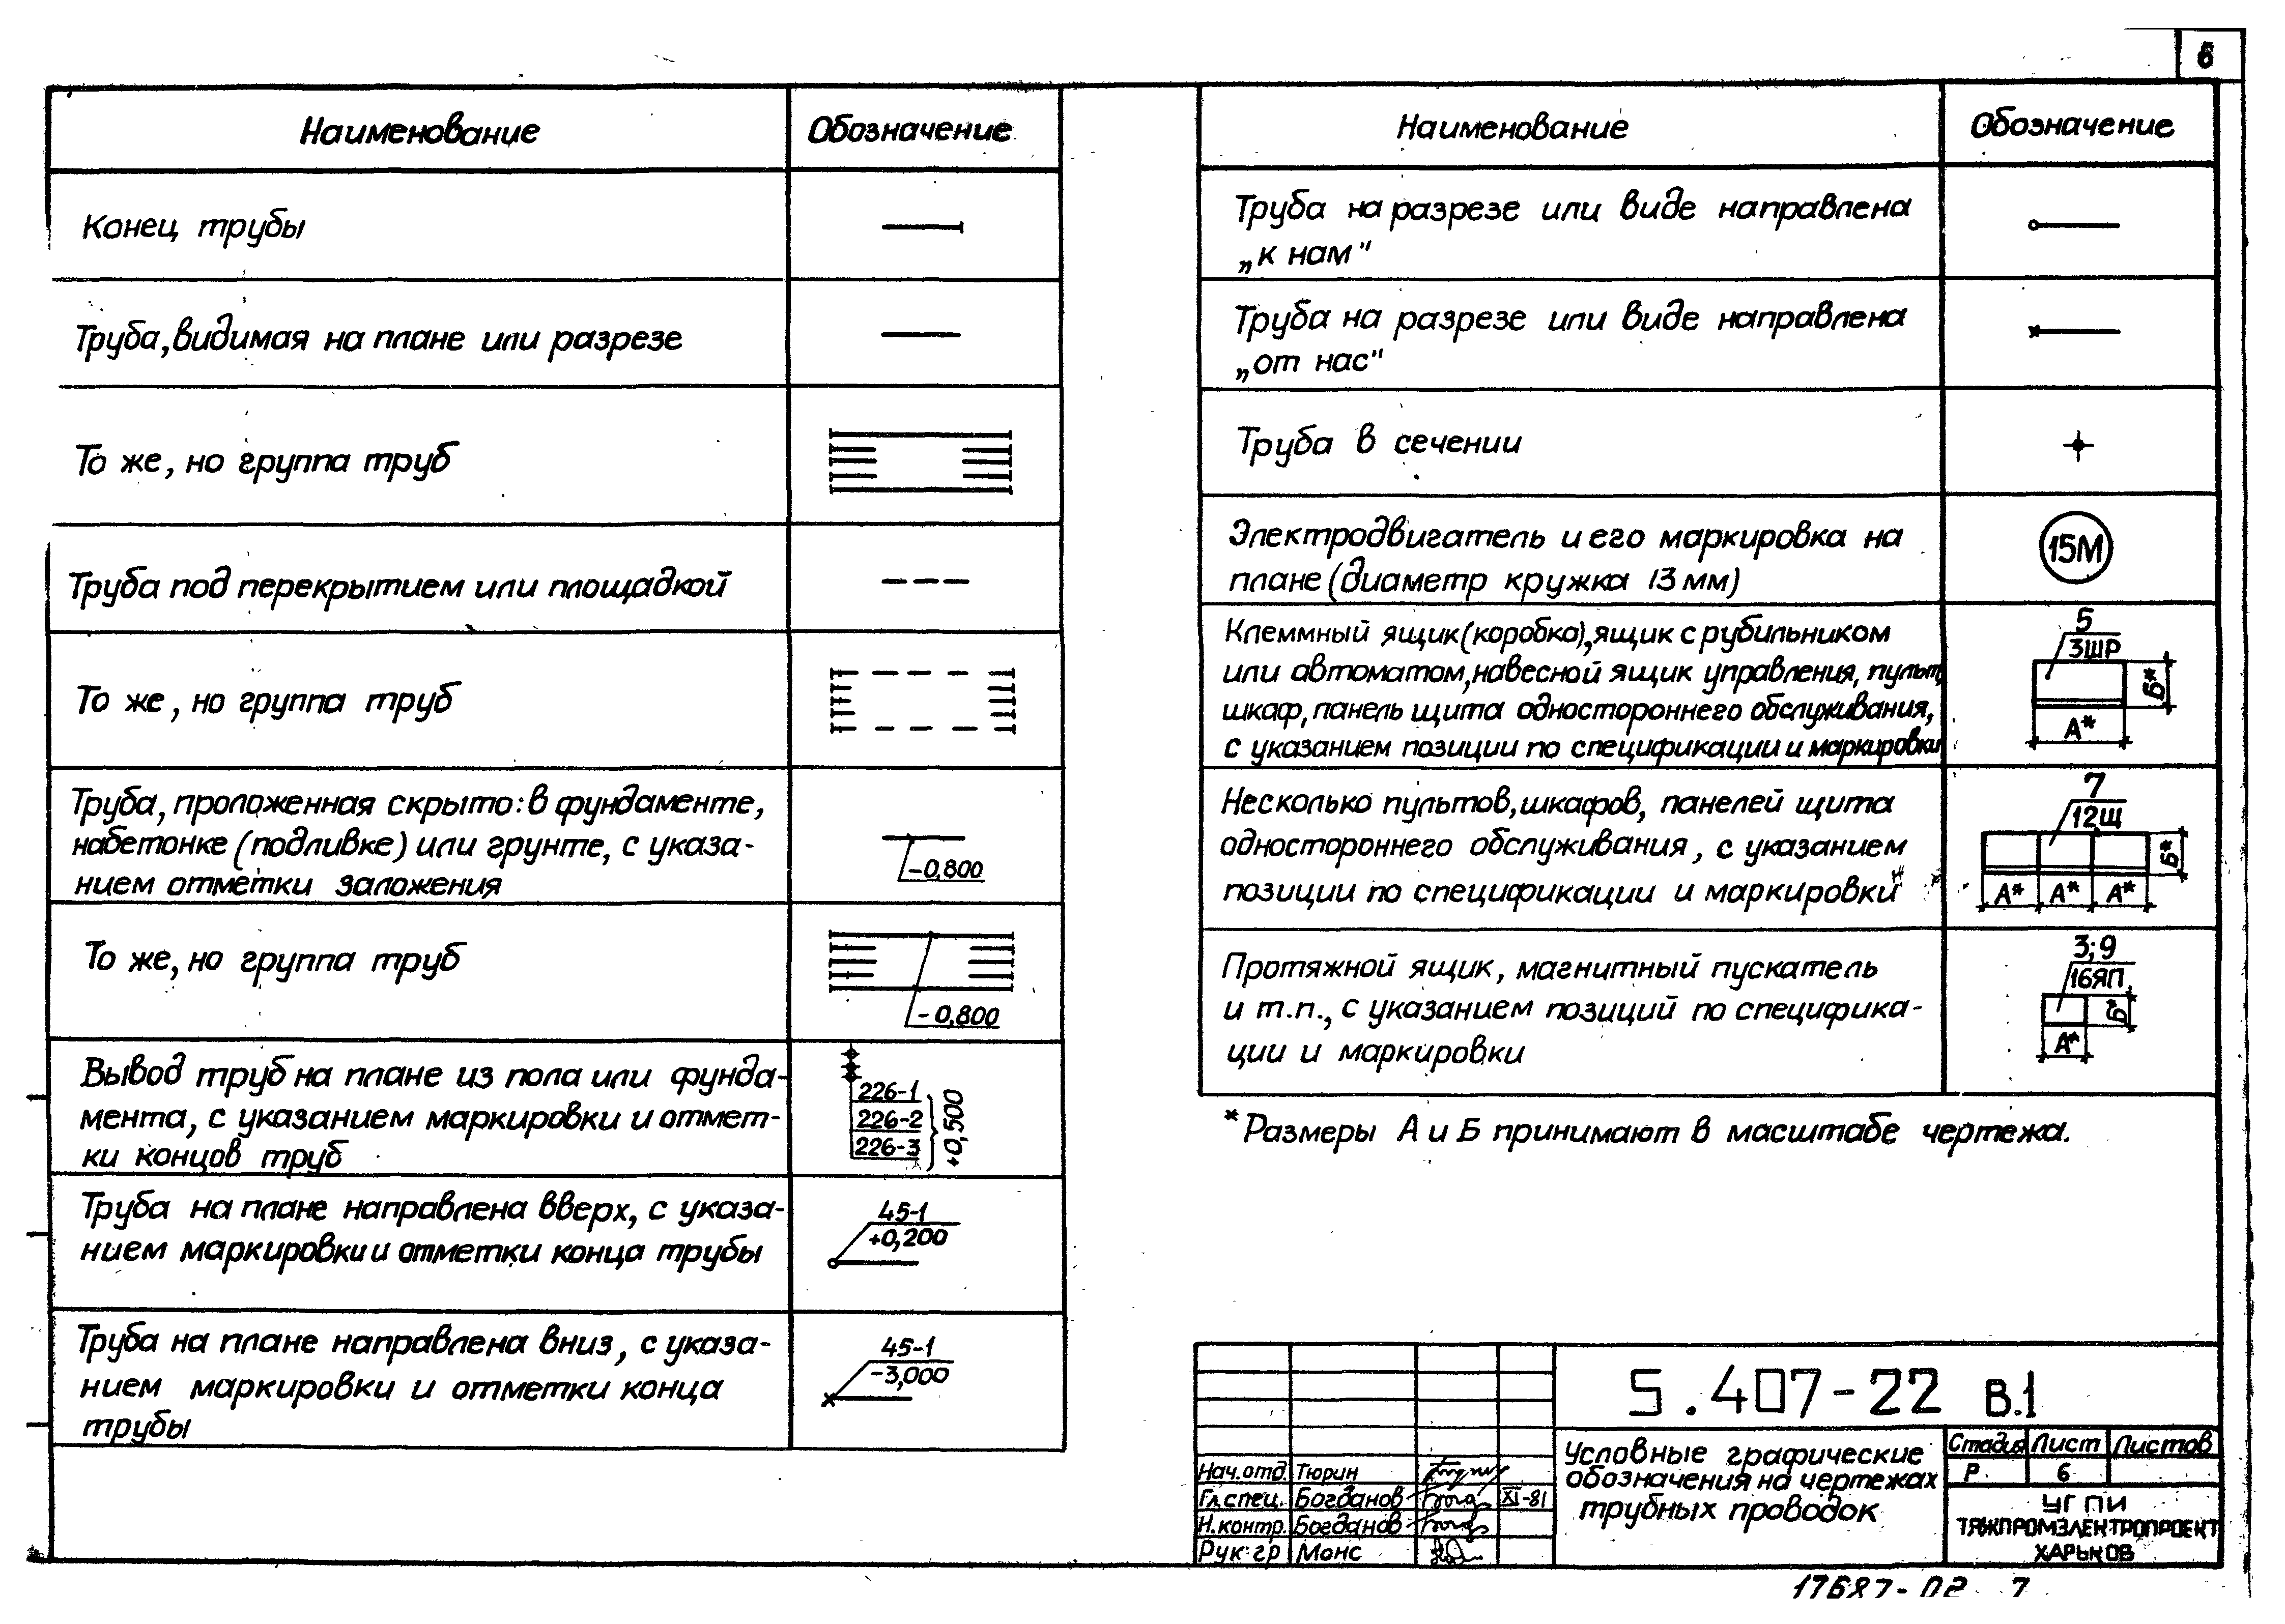 6
Наименование
Обозначение
Конец трубы
Труба, видимая на плане или разрезе
То же, но группа труб
Труба под перекрытием или площадкой
То же, но группа труб
Труба, проложенная скрыто: в фундаменте,
набетонке (подливке) или грунте, с указа-
нием отметки заложения
-0,800
То же, но группа труб
-0,800
Вывод труб на плане из пола или фунда-
мента, с указанием маркировки и отмет-
ки концов труб
226-1
226-2
226-3
+0,500
Труба на плане направлена вверх, с указа-
нием маркировки и отметки конца трубы
45-1
+0,200
Труба на плане направлена вниз, с указа-
нием маркировки и отметки конца
трубы
45-1
-3,000
Наименование
Обозначение
Труба на разрезе или виде направлена
„к нам"
Труба на разрезе или виде направлена
„от нас"
Труба в сечении
Электродвигатель и его маркировка на
плане (диаметр кружка 13 мм)
15М
Клеммный ящик (коробка), ящик с рубильником
или автоматом, навесной ящик управления, пульт,
шкаф, панель щита одностороннего обслуживания,
с указанием позиции по спецификации и маркировки
5
3ШР
Б*
А*
Несколько пультов, шкафов, панелей щита
одностороннего обслуживания, с указанием
позиции по спецификации и маркировки
7
12Щ
Б*
А* А* А*
Протяжной ящик, магнитный пускатель
и т.п., с указанием позиций по специфика-
ции и маркировки
3; 9
16ЯП
Б*
А*
*Размеры А и Б принимают в масштабе чертежа.
5.407-22 В.1
Условные графические
обозначения на чертежах
трубных проводок
Стадия Лист Листов
Р 6
УГПИ
ТЯЖПРОМЭЛЕКТРОПРОЕКТ
ХАРЬКОВ
Нач.отд. Тюрин
Гл.спец. Богданов XI-81
Н.контр. Богданов
Рук.гр Монс
17687-02 7